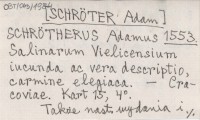 [SCHRÖTER Adam]
SCHRÖTHERUS Adamus 1553.
Salinarum Vielicensium
iucunda ac vera descriptio,
carmine elegiaco. — Cra-
coviae. Kart 15, 4°.
Także nast. wydania i